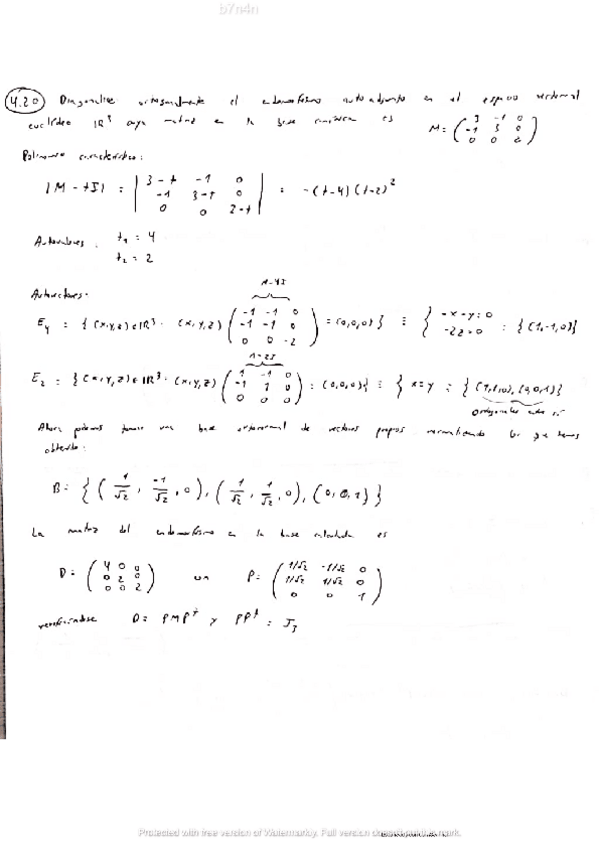 b7n4n
4.20 Diagonalice ortogonalmente el endomorfismo autoadjunto en el espacio vectorial
euclídeo IR³ cuya matriz en la base canónica es M = ( 3 -1 0 ; -1 3 0 ; 0 0 2 )
Polinomio característico:
|M - tI| = | 3-t -1 0 ; -1 3-t 0 ; 0 0 2-t | = -(t-4)(t-2)²
Autovalores: t₁ = 4
t₂ = 2
Autovectores:
E₄ = { (x,y,z) ∈ IR³ : (x,y,z) ( -1 -1 0 ; -1 -1 0 ; 0 0 -2 ) = (0,0,0) } ≡ { -x-y=0 ; -2z=0 = { (1,-1,0) }
E₂ = { (x,y,z) ∈ IR³ : (x,y,z) ( 1 -1 0 ; -1 1 0 ; 0 0 0 ) = (0,0,0) } ≡ { x=y = { (1,1,0), (0,0,1) }
ortogonales entre sí
Ahora podemos tomar una base ortonormal de vectores propios normalizando los que hemos
obtenido:
B = { ( 1/√2 , -1/√2 , 0 ), ( 1/√2 , 1/√2 , 0 ), (0,0,1) }
La matriz del endomorfismo en la base calculada es
D = ( 4 0 0 ; 0 2 0 ; 0 0 2 ) con P = ( 1/√2 -1/√2 0 ; 1/√2 1/√2 0 ; 0 0 1 )
verificándose D = PMPᵗ y PPᵗ = I₃
Protected with free version of Watermarkly. Full version doesn't put this mark.